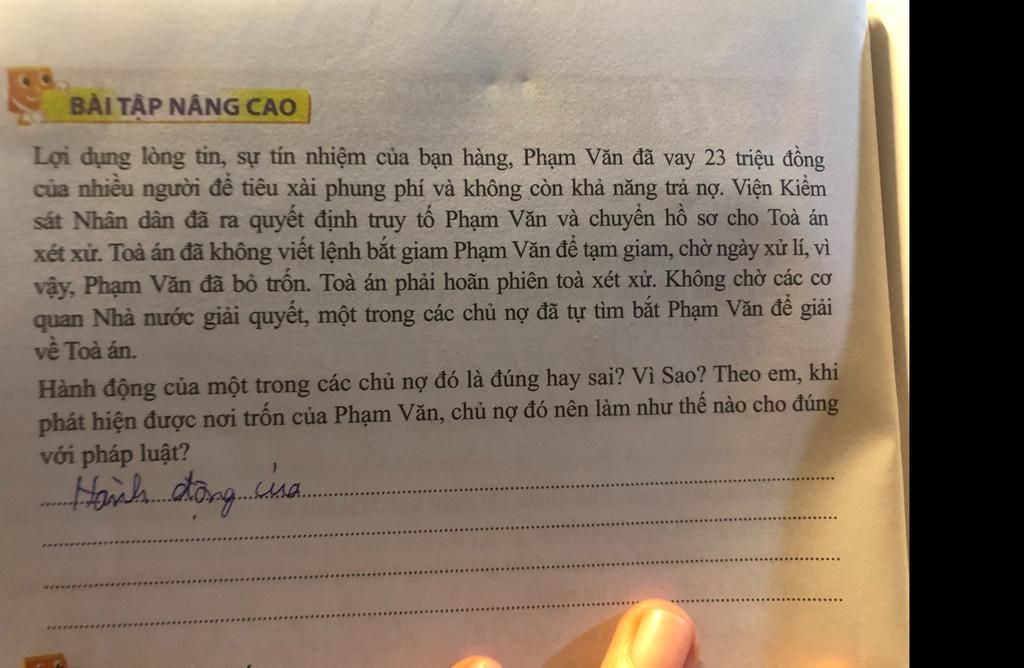 BÀI TẬP NÂNG CAO
Lợi dụng lòng tin, sự tín nhiệm của bạn hàng, Phạm Văn đã vay 23 triệu đồng
của nhiều người để tiêu xài phung phí và không còn khả năng trả nợ. Viện Kiểm
sát Nhân dân đã ra quyết định truy tố Phạm Văn và chuyển hồ sơ cho Toà án
xét xử. Toà án đã không viết lệnh bắt giam Phạm Văn để tạm giam, chờ ngày xử lí, vì
vậy, Phạm Văn đã bỏ trốn. Toà án phải hoãn phiên toà xét xử. Không chờ các cơ
quan Nhà nước giải quyết, một trong các chủ nợ đã tự tìm bắt Phạm Văn để giải
về Toà án.
Hành động của một trong các chủ nợ đó là đúng hay sai? Vì Sao? Theo em, khi
phát hiện được nơi trốn của Phạm Văn, chủ nợ đó nên làm như thế nào cho đúng
với pháp luật?
Hành động của